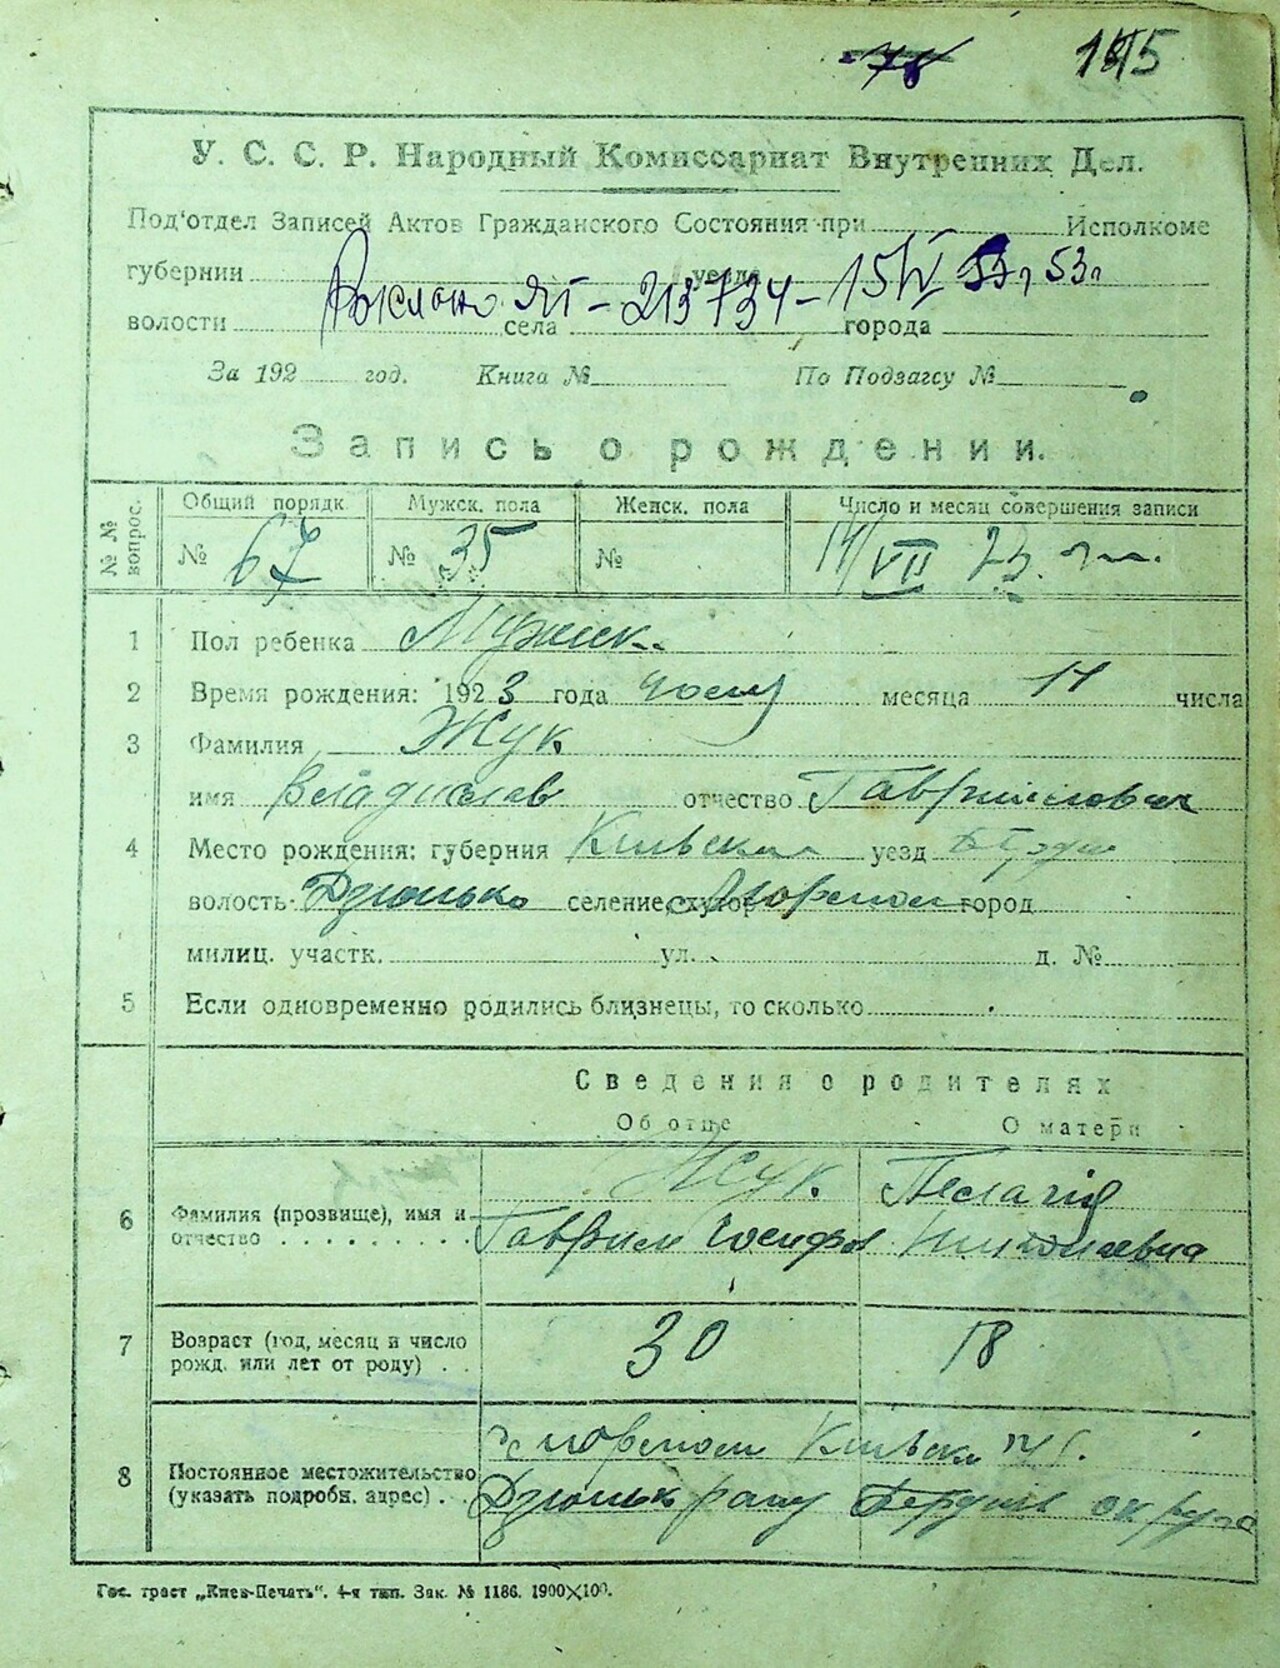 У. С. С. Р. Народный Комиссариат Внутренних Дел.
Под'отдел Записей Актов Гражданского Состояния при Исполкоме
губернии уезда
ЯТ - 213734 - 15/IV 53г
волости села города
За 192 год. Книга № По Подзагсу №
Запись о рождении.
№ № вопрос. Общий порядк. Мужск. пола Женск. пола Число и месяц совершения записи
№ 67 № 35 № VII 23
1 Пол ребенка Мужск.
2 Время рождения: 1923 года месяца 11 числа
3 Фамилия Жук
имя Владислав отчество Гавриилович
4 Место рождения: губерния Киевская уезд
волость Дзюнько селение, хутор город
милиц. участк. ул. д. №
5 Если одновременно родились близнецы, то сколько
Сведения о родителях
Об отце О матери
Жук Пелагія
6 Фамилия (прозвище), имя и отчество Гавриил Иосифов Николаевна
7 Возраст (год, месяц и число рожд. или лет от роду) 30 18
Киевск
8 Постоянное местожительство (указать подробн. адрес) Дзюньк Бердич округа
Гос. трест „Киев-Печать“. 4-я тип. Зак. № 1186. 1900×100.